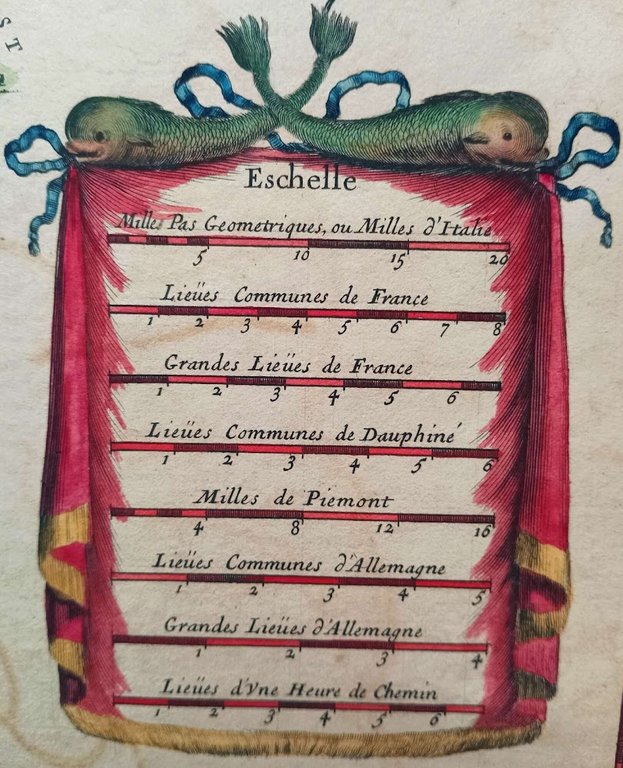 ST
Eschelle
Mille Pas Geometriques, ou Milles d'Italie
5 10 15 20
Lieües Communes de France
1 2 3 4 5 6 7 8
Grandes Lieües de France
1 2 3 4 5 6
Lieües Communes de Dauphiné
1 2 3 4 5 6
Milles de Piemont
4 8 12 16
Lieües Communes d'Allemagne
1 2 3 4 5
Grandes Lieües d'Allemagne
1 2 3 4
Lieües d'Vne Heure de Chemin
1 2 3 4 5 6